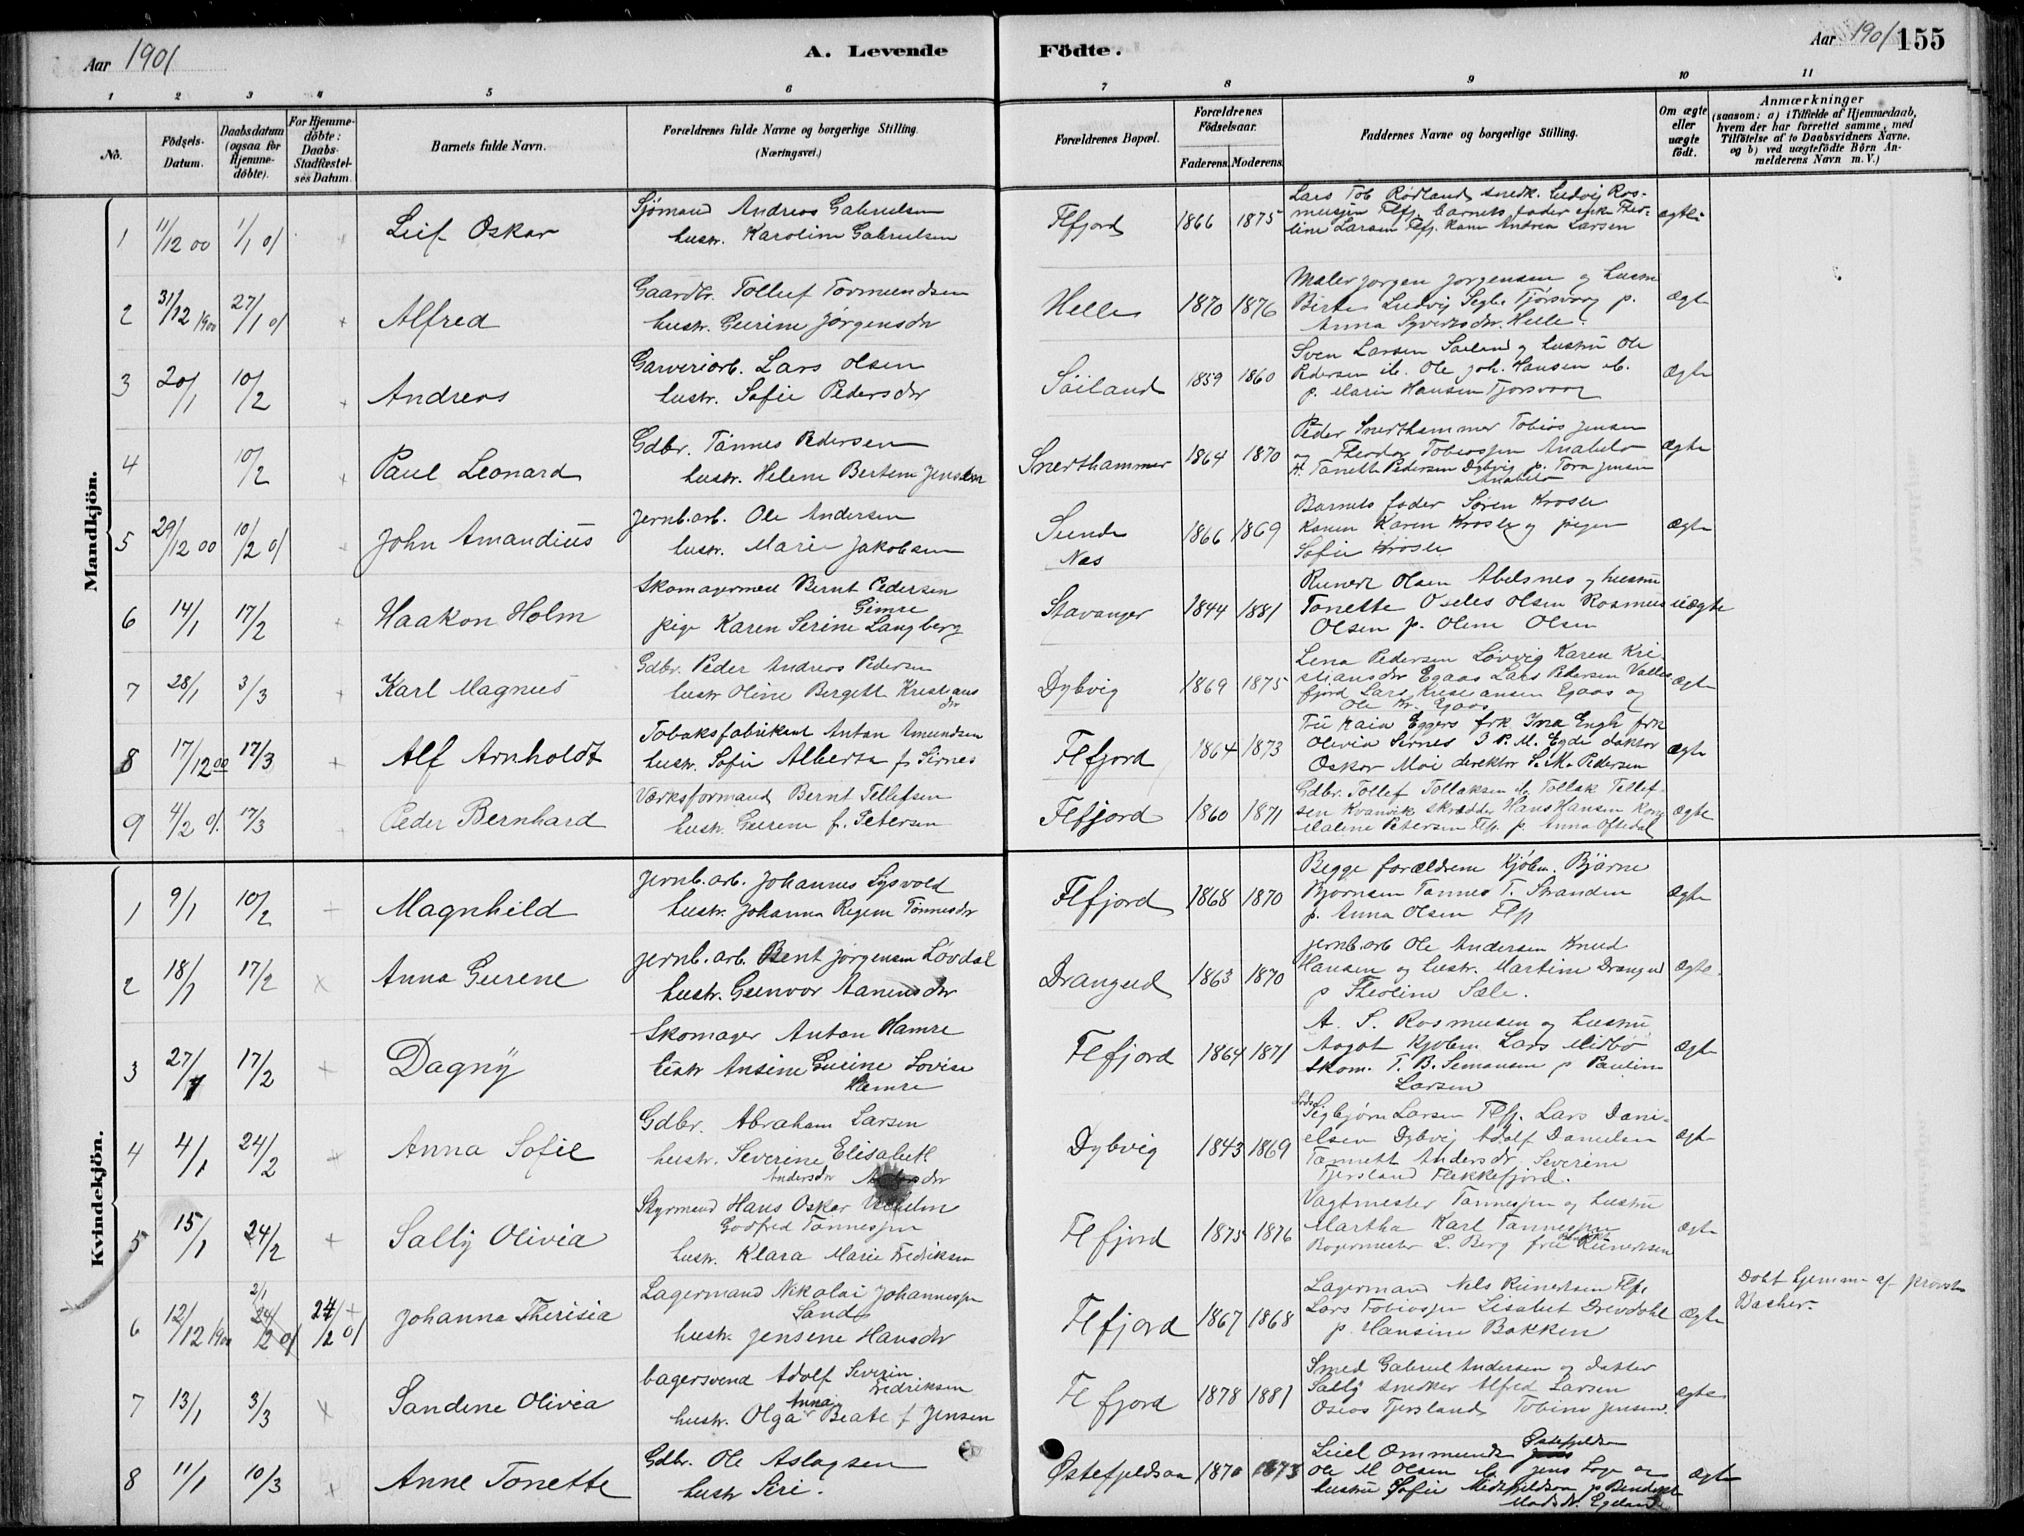 Aar 1901
A. Levende
Födte.
Aar 1901
155
1 2 3 4 5 6 7 8 9 10 11
No.
Födsels-Datum.
Daabsdatum (ogsaa for Hjemme-döbte).
For Hjemme-döbte: Daabs-Stadfæstel-ses Datum.
Barnets fulde Navn.
Forældrenes fulde Navne og borgerlige Stilling.
(Næringsvei.)
Forældrenes Bopæl.
Forældrenes Födselsaar.
Faderens. Moderens.
Faddernes Navne og borgerlige Stilling.
Om ægte eller uægte födt.
Anmærkninger
(saasom: a) i Tilfælde af Hjemmedaab, hvem der har forrettet samme, med Tilföielse af to Daabsvidners Navne. og b) ved uægtefödte Börn An-melderens Navn m. V.)
Mandkjön.
1 11/12 00 1/1 01 Leif Oskar
Sjömand Andreas Gabrielsen
hustr. Karoline Gabrielsen
Flfjord 1866 1875
Lars Tob Rødland snedk. Ludvig Ras-
musen Flfj. barnets fader enke Theo-
line Larsen Flfj. kone Andrea Larsen
ægte
2 31/12 1900 27/1 01 Alfred
Gaardbr. Tollef Tormundsen
hustr. Gurine Jørgensdtr
Helle 1870 1876
Maler Jørgen Jørgensen og hustru
Birte Ludvig Segl. Tjörsvaag p.
Anna Syvertsdtr. Helle.
ægte
3 20/1 10/2 Andreas
Garveriarb. Lars Olsen
hustr. Sofie Pedersdtr
Söiland 1859 1860
Sven Larsen Søiland og hustru Ole
Pedersen ib. Ole Joh. Hansen ib.
p. Marie Hansen Tjorsvaag
ægte
4 10/2 Paul Leonard
Gdbr. Tönnes Pedersen
hustr. Helene Bertine Jensdtr
Snerthammer 1864 1870
Peder Snerthammer Tobias Jensen
og Theodor Tobiassen Anabelø
Tanette Pedersen Dybvig p. Tora Jensen
Anabelø
ægte
5 29/12 00 10/2 01 John Amandius
Jernb.arb. Ole Andersen
hustr. Marie Jakobsen
Sunde
Nes
1866 1869
Barnets fader Søren Krosle
konen Karen Krosle og pigen
Sofie Krosle
ægte
6 14/1 17/2 Haakon Holm
Skomagermest Bernt Pedersen
Gimre
pige Karen Serine Langberg
Stavanger 1844 1881
Runert Olsen Abelsnes og hustru
Tonette Oseles Olsen Rasmus
Olsen p. Oline Olsen
uægte
7 28/1 3/3 Karl Magnus
Gdbr. Peder Andreas Pedersen
hustr Oline Bergette Kristians
dtr
Dybvig 1869 1875
Lena Pedersen Løvvig Karen Kri-
stiansdtr Egaas Lars Pedersen Valles
fjord Lars Kristiansen Egaas og
Ole Kr. Egaas
ægte
8 17/12 00 17/3 Alf Arnholdt
Tobaksfabrikant Anton Amundsen
hustr. Sofie Alberta f. Sirnes
Flfjord 1864 1873
Fru Kaia Eggers frk Ina Engh frk
Olivia Sirnes J. P. M. Egde doktor
Oskar Moi direktør S. M. Pedersen
ægte
9 4/2 01. 17/3 Peder Bernhard
Værksformand Bernt Tellefsen
hustr. Gurine f. Petersen
Flfjord 1860 1871
Gdbr. Tollef Tollaksen ib. Tollak Tellef-
sen Kvanvik skrædder Hans Hansen kone
Malene Petersen Flfj. p. Anna Oftedal
ægte
Kvindekjön.
1 9/1 10/2 Magnhild
Jernb.arb. Johannes Sysvold
hustr. Johanna Regine Tönnesdtr
Flfjord 1868 1870
Begge forældrene Kjøbm. Bjarne
Bjornsen Tønnes T. Stranden
p. Anna Olsen Flfj
ægte
2 18/1 17/2 Anna Gurene
Jernb.arb. Bent Jørgensen Løvdal
hustr. Gunvor Aanensdtr
Drangeid 1863 1870
Jernb.arb Ole Andersen Knud
Hansen og hustr. Martine Drangeid
p Theoline Sæle.
ægte
3 27/1 17/2 Dagny
Skomager Anton Hamre
hustr Ansine Gurine Lovise
Hamre
Flfjord 1864 1871
A. S. Rasmusen og hustru
Aagot Kjøbm Lars Midbø
Skom. T. B. Semansen p Pauline
Larsen
ægte
4 4/1 24/2 Anna Sofie
Gdbr. Abraham Larsen
hustr. Severine Elisabeth
Andersdtr
Dybvig 1843 1869
Lods Sigbjørn Larsen Flfj. Lars Dani-
elsen Dybvig Adolf Danielsen
Tønnette Andersdtr Severine
Tjersland Flekkefjord.
ægte
5 15/1 24/2 Sally Olivia
Styrmand Hans Oskar Vilhelm
Godfred Tønnesen
hustr. Klara Marie Fredriksen
Flfjord 1875 1876
Vagtmester Tønnesen og hustru
Martha Karl Tønnesen
Bagermester L. Berg frue Reinertsen
ægte
6 12/12 1900 2/1 24/2 01 24/2 01 Johanna Therisia
Lagermand Nikolai Johannesen
Sand
hustr. Jensene Hansdtr
Flfjord 1867 1868
Lagermand Nels Reinertsen Flfj.
Lars Tobiassen Lisabet Drevdahl
p. Hansine Bakken
ægte
Døbt hjemme af provst
Bacher.
7 13/1 3/3 Sandene Olivia
bagersvend Adolf Severin
Fredriksen
Anna
hustr. Olga Beate f Jensen
Flfjord 1878 1881
Smed Gabriel Andersen og datter
Sally snedker Alfred Larsen
Oseas Tjersland Tobine Jensen.
ægte
8 11/1 10/3 Anne Tonette
Gdbr. Ole Aslagsen
hustr Siri.
Østefjeldsaa 1870 1873
Leiel Ommunds Østefjeldsaa
Ole M Olsen ib. Jens Loge og
hustru Sofie Midtfjeldsaa p Bendikte
Madsdtr. Egeland
ægte